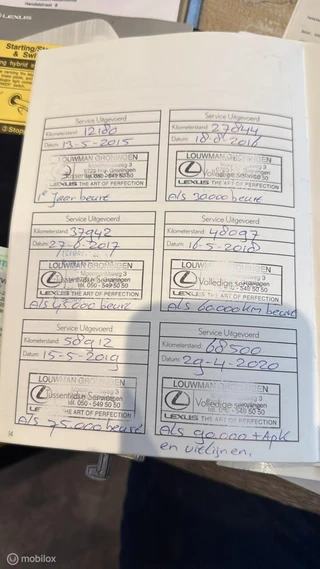 LEXUS
Starting/
& Sw
ng hybrid s
Service Uitgevoerd
Kilometerstand: 12180
Datum: 13-5-2015
LOUWMAN GRONINGEN
tel. 050 - 549 50 50
LEXUS THE ART OF PERFECTION
1e Jaar beurt
Service Uitgevoerd
Kilometerstand: 27844
Datum:
LOUWMAN GRONINGEN
Volledige
tel. 050 - 549 50 50
LEXUS THE ART OF PERFECTION
Als 30000 beurt
Service Uitgevoerd
Kilometerstand: 37942
Datum: 2017
LOUWMAN GRONINGEN
Tussentijdse
tel. 050 - 549 50 50
LEXUS THE ART OF PERFECTION
Als 45.000 beurt
Service Uitgevoerd
Kilometerstand: 48097
Datum:
LOUWMAN GRONINGEN
Volledige
tel. 050 - 549 50 50
LEXUS THE ART OF PERFECTION
Als 60.000 km beurt
Service Uitgevoerd
Kilometerstand: 58912
Datum: 15-5-2019
LOUWMAN GRONINGEN
Tussentijdse
tel. 050 - 549 50 50
LEXUS THE ART OF PERFECTION
Als 75.000 beurt
Service Uitgevoerd
Kilometerstand: 68500
Datum: 29-4-2020
LOUWMAN GRONINGEN
Volledige
tel. 050 - 549 50 50
LEXUS THE ART OF PERFECTION
Als 90.000 + Apk
en uitlijnen.
14
mobilox